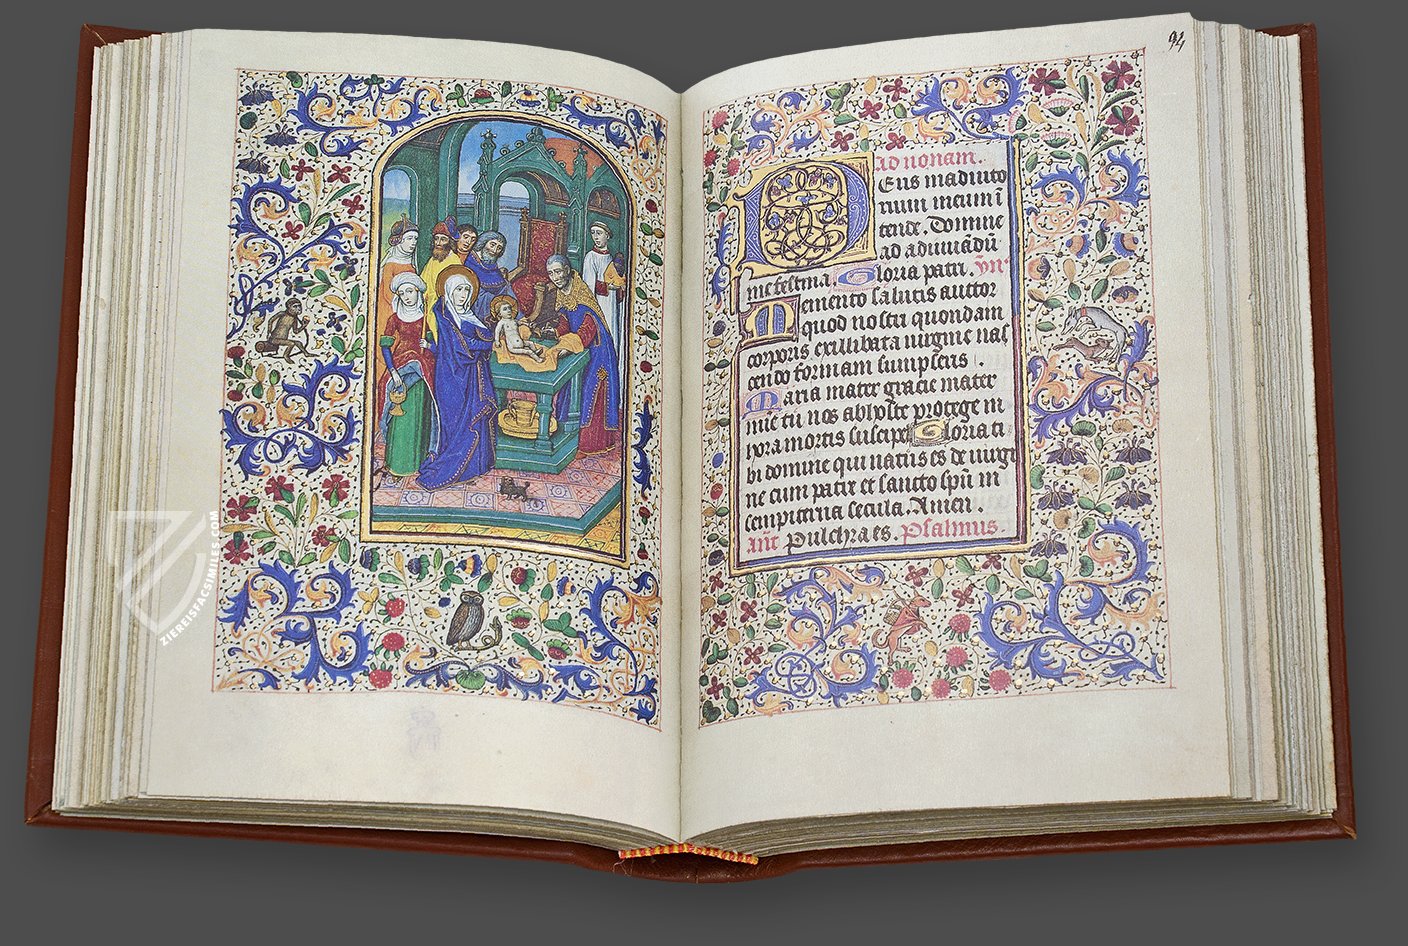 ZIEREISFACSIMILES.COM
94
ad nonam.
Deus in adiuto
rium meum ī
tende. Domine
ad adiuuādū
me festina. Gloria patri. yn̄
Memento salutis auttor
quod nostri quondam
corporis ex illibata uirgine nas
cendo formam sumpseris.
Maria mater gracie mater
mie tu nos ab hoste protege in
hora mortis suscipe Gloria ti
bi domine qui natus es de uirgi
ne cum patre et sancto spū in
sempiterna secula. Amen.
ant Pulchra es. Psalmus.